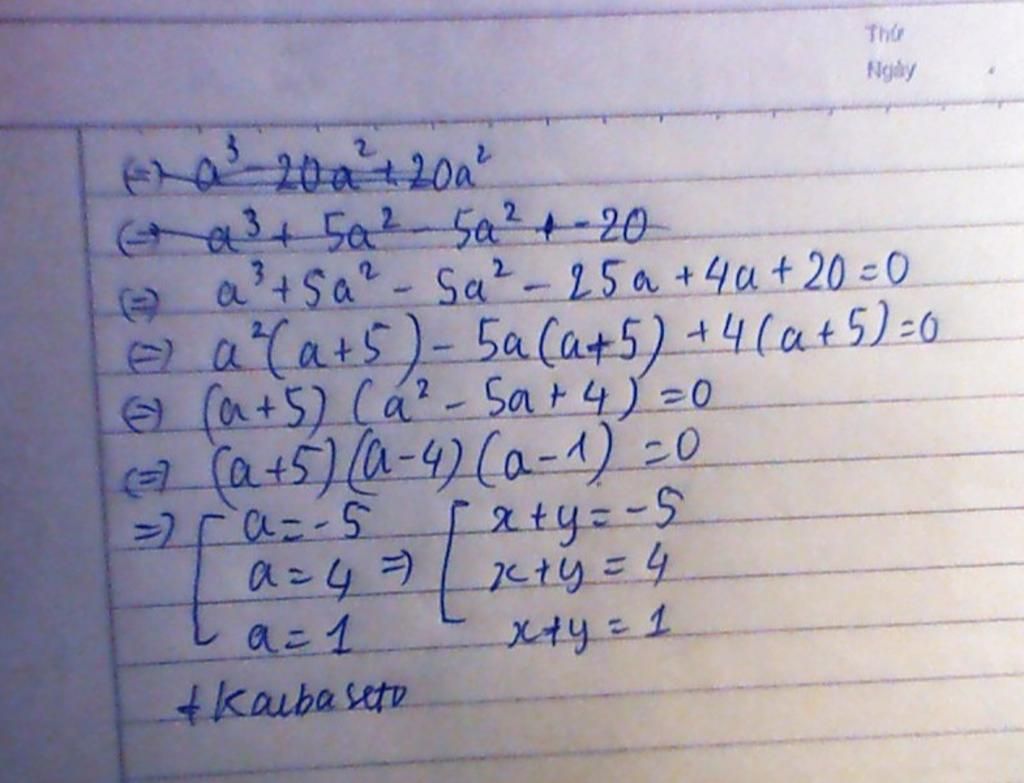 Thứ
Ngày
(=) a³ - 20a² + 20a²
(=) a³ + 5a² - 5a² + - 20
(=) a³ + 5a² - 5a² - 25a + 4a + 20 = 0
(=) a²(a+5) - 5a(a+5) + 4(a+5) = 0
(=) (a+5) (a² - 5a + 4) = 0
(=) (a+5)(a-4)(a-1) = 0
=) [ a = -5 [ x+y = -5
a = 4 =) x+y = 4
a = 1 x+y = 1
+ Kaibaseto